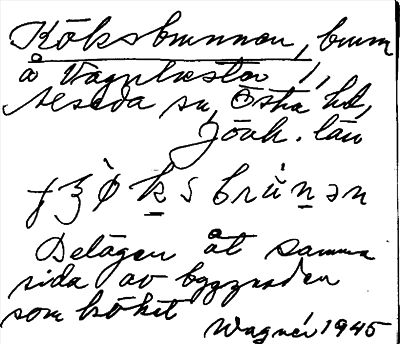 Köksbrunnen, brunn
å Vagnhester 1/1,
Neseda sn, Östra hd,
Jönk. län
ƒʒø̀ksbrùnən
Belägen åt samma
sida av byggnaden
som köket
Wagnér 1945